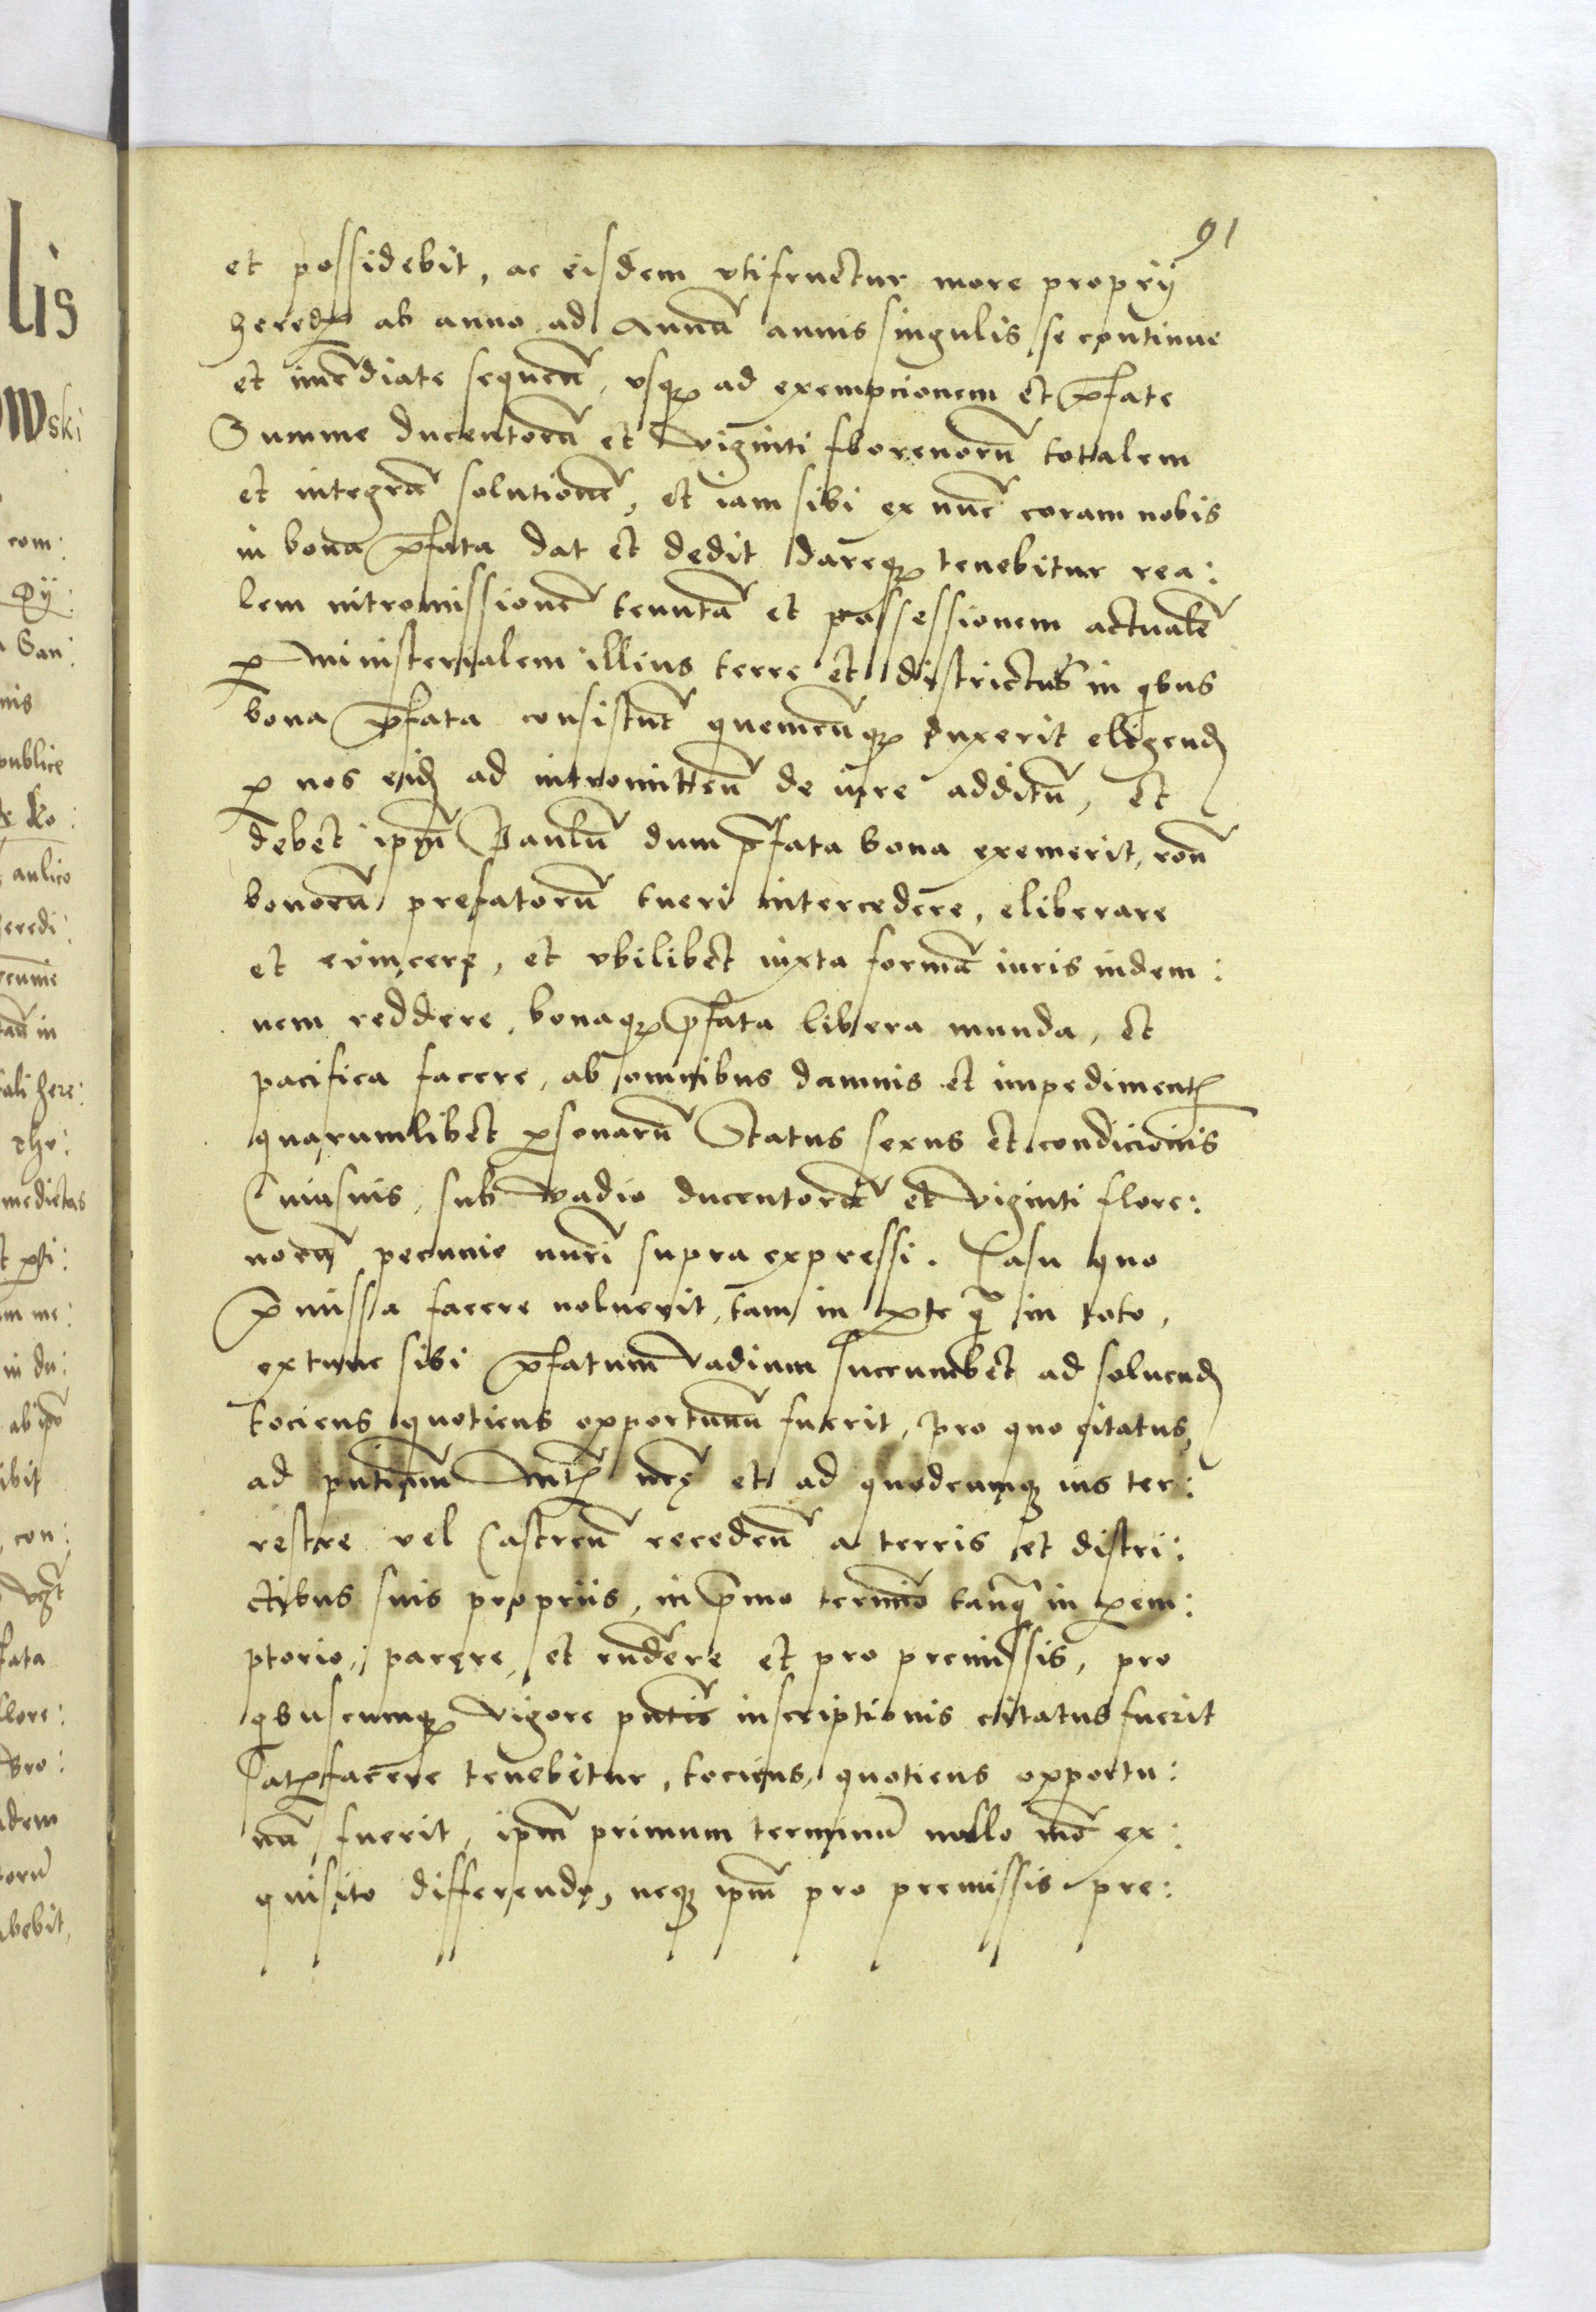 91
et possidebit, ac eisdem utifruetur more proprij
hered~ ab anno ad Annū annis singulis se continue
et im̄ediate sequeñ, usq~ ad exempcionem et p̄fate
Summe ducentorū et viginti florenorū totalem
et integrā solutionē, et iam sibi ex nūc coram nobis
in bona p̄fata dat et dedit dareq~ tenebitur rea:
lem intromissionē tenutā et possessionem actualē
p~ ministerialem illius terre et districtus in qbus
bona p̄fata consistūt quemcūq~ duxerit eligend~
p~ nos eid~ ad intromitteñ de iure additū, et
debet ip̄m Paulū dum p̄fata bona exemerit, roñe
bonorū prefatorū tueri intercedere, eliberare
et evincere, et ubilibet iuxta formā iuris indem:
nem reddere, bonaq~ p̄fata libera munda, et
pacifica facere, ab omnibus damnis et impediment~
quarumlibet p~sonarū Status sexus et condicionis
Cuiusuis, sub vadio ducentorū et viginti flore:
norū pecunie nūri supra expressi. Casu quo
p̄missa facere noluerit, tam in p~te q̄ in toto,
extunc sibi p̄fatum vadium succumbet ad soluend~
tociens quotiens opportunū fuerit, pro quo citatus,
ad pn̄tium Act~ nr̄e et ad quodcumq~ ius ter:
restre vel Castreñ recedeñ a terris et distri:
ctibus suis propriis, in p̄mo termīo tanq̄ in p~em:
ptorio, parere, et rn̄dere et pro premissis, pro
qbuscumq~ vigore pn̄tis inscriptionis citatus fuerit
Sat~facere tenebitur, tociens, quotiens opportu:
nū fuerit, ip̄m primum terminū nullo mō ex:
quisito differendo, neq~ ip̄m pro premissis pre:
lis
owski
com:
San:
nis
publice
Ko:
aulico
heredi:
in
tali here:
medietas
in du:
ibit
con:
fata
flore:
bro:
idem
torū
habebit,